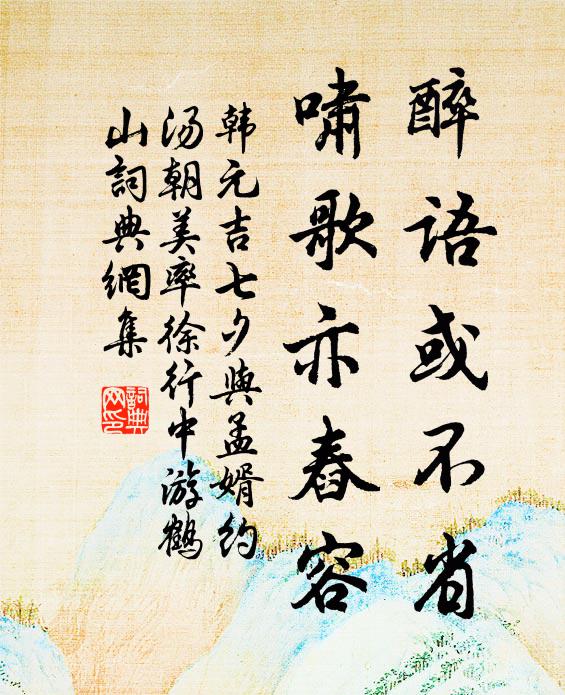 醉语或不省
啸歌亦舂容
韩元吉七夕與孟婿约
汤朝美率徐行中游鹤
山詞典網集
詞典
网印